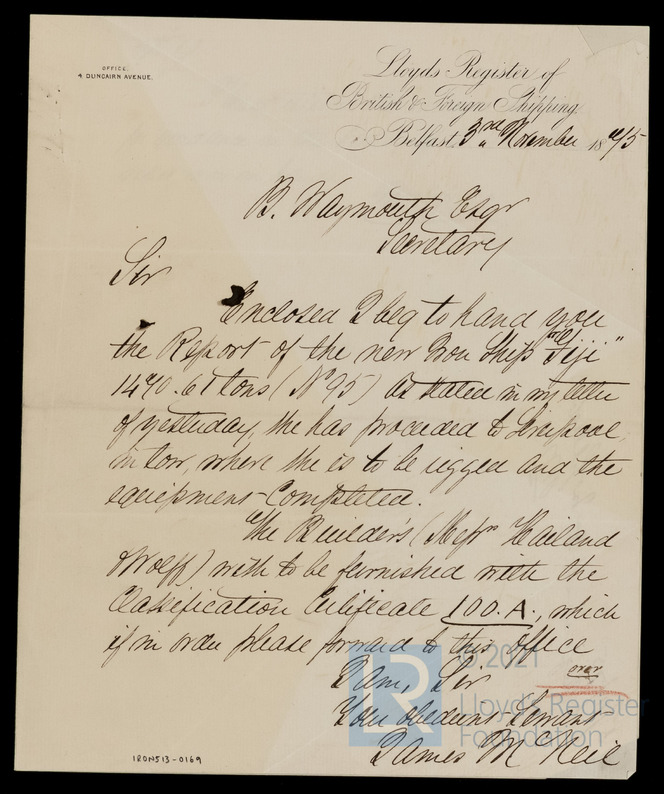 OFFICE.
4 DUNCAIRN AVENUE.
Lloyds Register of
British & Foreign Shipping.
Belfast, 3rd November 1875
B. Waymouth Esqr
Secretary
Sir
Enclosed I beg to hand you
the Report of the new Iron Ship "Fiji"
1470.61 tons (No 95) As stated in my letter
of yesterday, she has proceeded to Liverpool,
in tow, where she is to be rigged and the
equipment completed.
The Builders (Messrs Harland
& Wolff) wish to be furnished with the
Classification Certificate 100.A., which
if in order please forward to this office
over
I am, Sir
Your obedient Servant
James McNeil
© 2021
Lloyd's Register
Foundation
LR
IRON513-0169